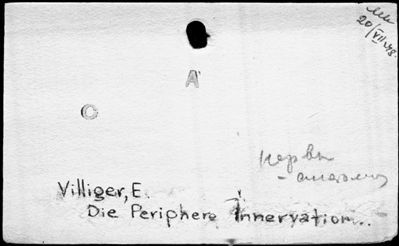 20/VII 48.
A
C
нервы
- анатомия
Villiger, E.
Die Periphere Innervation...